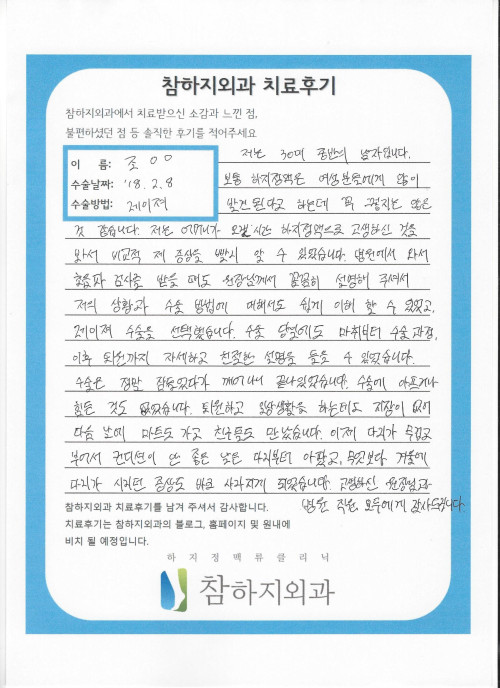 참하지외과 치료후기
참하지외과에서 치료받으신 소감과 느낀 점,
불편하셨던 점 등 솔직한 후기를 적어주세요
이 름: 조○○
수술날짜: '18. 2. 8
수술방법: 레이져
저는 30대 중반의 남자입니다.
보통 하지정맥은 여성분들에게 많이
발견된다고 하는데 꼭 그렇지는 않은
것 같습니다. 저는 어머니가 오랜시간 하지정맥으로 고생하신 것을
봐서 비교적 제 증상을 빨리 알 수 있었습니다. 병원에서 와서
초음파 검사를 받을 때도 원장님께서 꼼꼼히 설명해 주셔서
저의 상황과 수술 방법에 대해서도 쉽게 이해 할 수 있었고,
레이져 수술을 선택했습니다. 수술 당일에도 마취부터 수술과정,
이후 퇴원까지 자세하고 친절한 설명을 들을 수 있었습니다.
수술은 정말 잠들었다가 깨어나니 끝나있었습니다. 수술에 아프거나
힘든 것도 없었습니다. 퇴원하고 일상생활을 하는데도 지장이 없어
다음 날에 마트도 가고 친구들도 만났습니다. 이제 다리가 무겁고
부어서 컨디션이 안 좋은 날은 다리부터 아팠고, 무엇보다 겨울에
다리가 시리던 증상도 바로 사라지게 되었습니다. 고생하신 원장님과
병원 직원 모두에게 감사드립니다.
참하지외과 치료후기를 남겨 주셔서 감사합니다.
치료후기는 참하지외과의 블로그, 홈페이지 및 원내에
비치 될 예정입니다.
하지정맥류클리닉
참하지외과